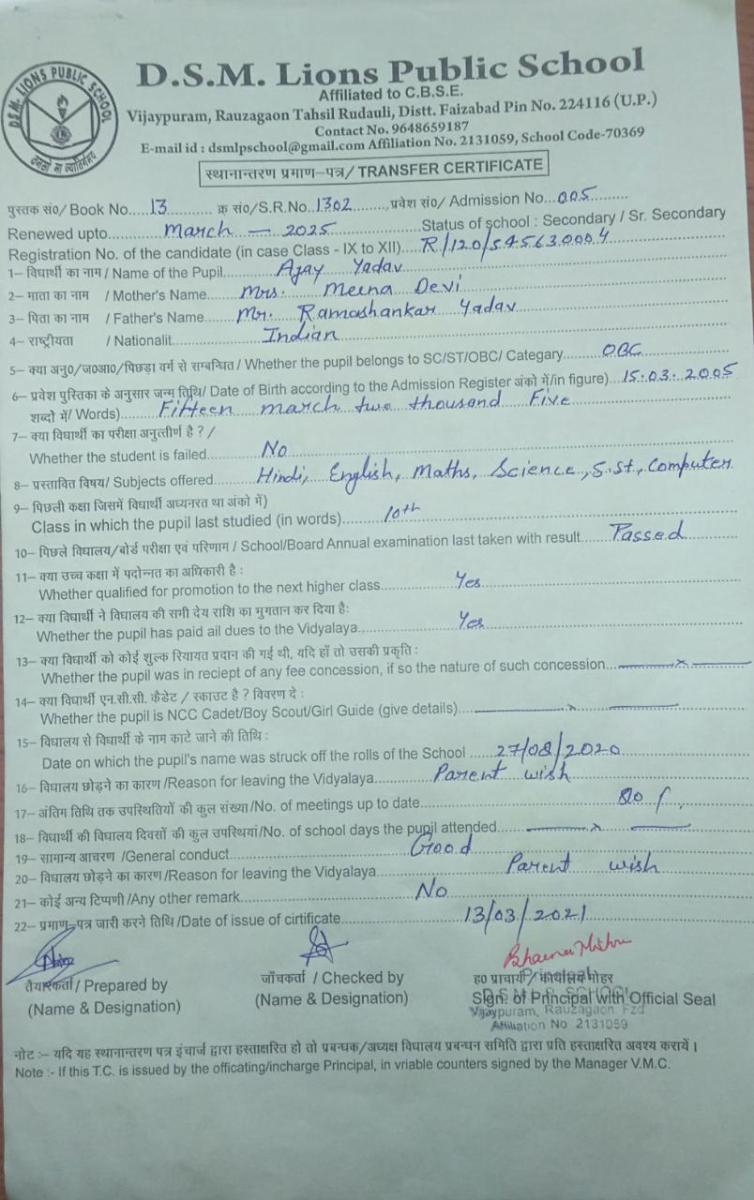 D.S.M. LIONS PUBLIC SCHOOL
D.S.M. Lions Public School
Affiliated to C.B.S.E.
Vijaypuram, Rauzagaon Tahsil Rudauli, Distt. Faizabad Pin No. 224116 (U.P.)
Contact No. 9648659187
E-mail id : dsmlpschool@gmail.com Affiliation No. 2131059, School Code-70369
स्थानान्तरण प्रमाण-पत्र/ TRANSFER CERTIFICATE
पुस्तक सं०/ Book No.....13.......... क्र सं०/S.R.No..1302........प्रवेश सं०/ Admission No...005..........
Renewed upto..........March — 2025.......... Status of school : Secondary / Sr. Secondary
Registration No. of the candidate (in case Class - IX to XII)...R/120/54563.0004
1– विद्यार्थी का नाम / Name of the Pupil..........Ajay Yadav..........
2– माता का नाम / Mother's Name.....Mrs. Meena Devi..........
3– पिता का नाम / Father's Name.....Mr. Ramashankar Yadav..........
4– राष्ट्रीयता / Nationalit..........Indian..........
5– क्या अनु०/ज०आ०/पिछड़ा वर्ग से सम्बन्धित / Whether the pupil belongs to SC/ST/OBC/ Categary........OBC........
6– प्रवेश पुस्तिका के अनुसार जन्म तिथि/ Date of Birth according to the Admission Register अंको में/in figure)...15.03.2005
शब्दो में/ Words)......Fifteen march two thousand Five..........
7– क्या विद्यार्थी का परीक्षा अनुत्तीर्ण है ? /
Whether the student is failed........No..........
8– प्रस्तावित विषय/ Subjects offered......Hindi, English, Maths, Science, S.st, Computer
9– पिछली कक्षा जिसमें विद्यार्थी अध्यनरत था अंको में)
Class in which the pupil last studied (in words)........10th..........
10– पिछले विद्यालय/बोर्ड परीक्षा एवं परिणाम / School/Board Annual examination last taken with result......Passed......
11– क्या उच्च कक्षा में पदोन्नत का अधिकारी है :
Whether qualified for promotion to the next higher class..........Yes..........
12– क्या विद्यार्थी ने विद्यालय की सभी देय राशि का भुगतान कर दिया है:
Whether the pupil has paid ail dues to the Vidyalaya..........Yes..........
13– क्या विद्यार्थी को कोई शुल्क रियायत प्रदान की गई थी, यदि हाँ तो उसकी प्रकृति :
Whether the pupil was in reciept of any fee concession, if so the nature of such concession...—×—
14– क्या विद्यार्थी एन.सी.सी. कैडेट / स्काउट है ? विवरण दे :
Whether the pupil is NCC Cadet/Boy Scout/Girl Guide (give details)....—×—
15– विद्यालय से विद्यार्थी के नाम काटे जाने की तिथि :
Date on which the pupil's name was struck off the rolls of the School .....27/08/2020
16– विद्यालय छोड़ने का कारण /Reason for leaving the Vidyalaya..........Parent wish
17– अंतिम तिथि तक उपस्थितियों की कुल संख्या/No. of meetings up to date..........
18– विद्यार्थी की विद्यालय दिवसों की कुल उपस्थियां/No. of school days the pupil attended.....—×—
19– सामान्य आचरण /General conduct..........Good
20– विद्यालय छोड़ने का कारण/Reason for leaving the Vidyalaya..........Parent wish
21– कोई अन्य टिप्पणी/Any other remark..........No
22– प्रमाण-पत्र जारी करने तिथि /Date of issue of cirtificate..........13/03/2021
तैयारकर्ता/ Prepared by जाँचकर्ता / Checked by ह० प्राचार्य/ कार्यालय मोहर
(Name & Designation) (Name & Designation) Sign. of Principal with Official Seal
Vijaypuram, Rauzagaon Fzd
Affiliation No 2131059
नोट :– यदि यह स्थानान्तरण पत्र इंचार्ज द्वारा हस्ताक्षरित हो तो प्रबन्धक/अध्यक्ष विद्यालय प्रबन्धन समिति द्वारा प्रति हस्ताक्षरित अवश्य करायें ।
Note :- If this T.C. is issued by the officating/incharge Principal, in vriable counters signed by the Manager V.M.C.